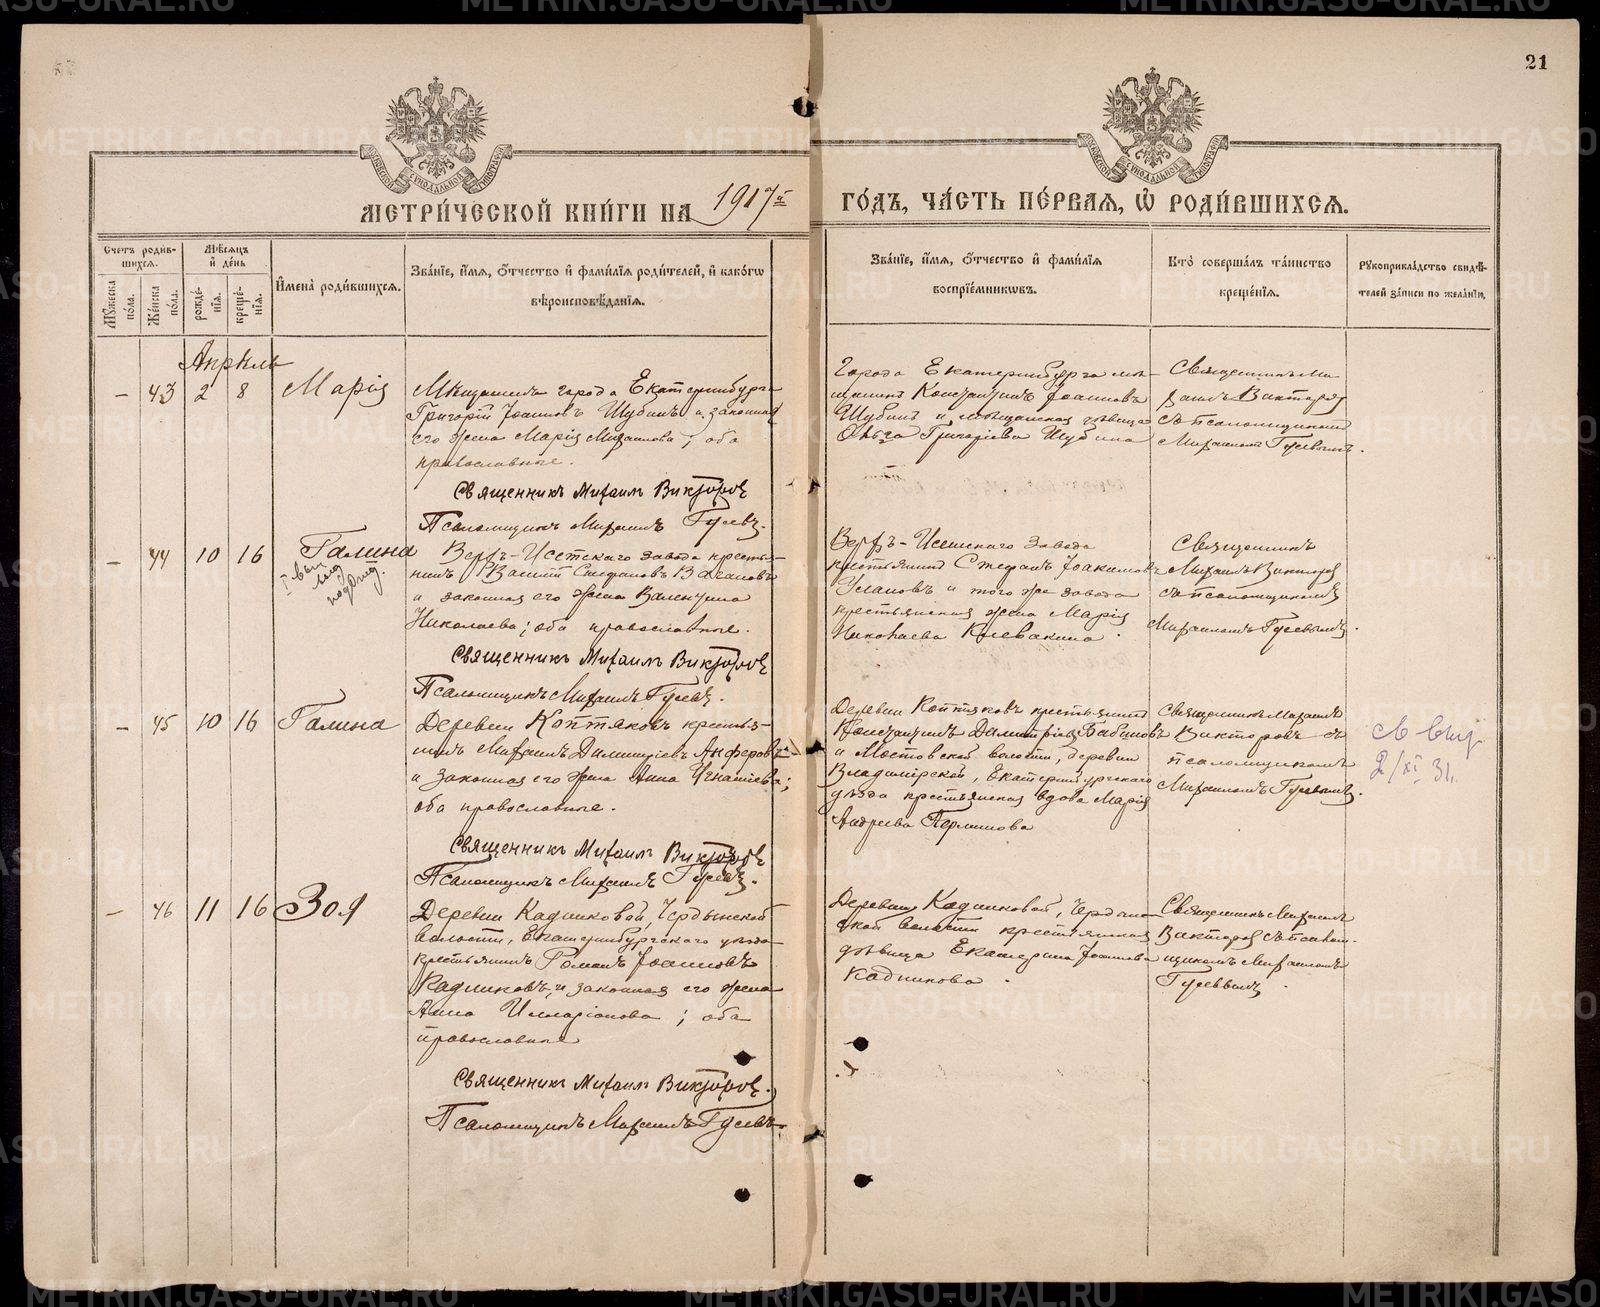 21
МЕТРИ́ЧЕСКОЙ КНИ́ГИ НА 1917й ГО́ДЪ, ЧА́СТЬ ПЕ́РВАЯ, Ѡ РОДИ́ВШИХСЯ.
Счетъ родив-
шихся.
Мѣсяцъ
и день
Мужеска пола.
Женска пола.
рожде-
нія.
креще-
нія.
Имена родившихся.
Званіе, имя, отчество и фамилія родителей, и какого
вѣроисповѣданія.
Званіе, имя, отчество и фамилія
воспріемниковъ.
Кто совершалъ таинство
крещенія.
Рукоприкладство свидѣ-
телей записи по желанію.
Апрѣль
– 43 2 8 Марія
Мѣщанинъ города Екатеринбурга
Григорій Іоанновъ Шубинъ и законная
его жена Марія Михаилова; оба
православные.
Священникъ Михаилъ Викторовъ
Псаломщикъ Михаилъ Гусевъ.
Города Екатеринбурга мѣ-
щанинъ Константинъ Іоанновъ
Шубинъ и мѣщанская дѣвица
Ольга Григоріева Шубина
Священникъ Ми-
хаилъ Викторовъ
съ псаломщикомъ
Михаиломъ Гусевымъ.
– 44 10 16 Галина
Верхъ-Исетскаго завода крестья-
нинъ Стефановъ
и законная его жена Валентина
Николаева; оба православные.
Священникъ Михаилъ Викторовъ
Псаломщикъ Михаилъ Гусевъ.
Верхъ-Исетскаго завода
крестьянинъ Стефанъ Іоакимовъ
и того же завода
крестьянская жена Марія
Николаева Клевакина.
Священникъ
Михаилъ Викторовъ
съ псаломщикомъ
Михаиломъ Гусевымъ.
– 45 10 16 Галина
Деревни Коптяковъ крестья-
нинъ Михаилъ Димитріевъ Анферовъ
и законная его жена Анна Игнатіева;
оба православные.
Священникъ Михаилъ Викторовъ
Псаломщикъ Михаилъ Гусевъ.
Деревни Коптяковъ крестьянинъ
Константинъ Димитріевъ Бабиновъ
и Мостовской волости, деревни
Владимірской, Екатеринбургскаго
уѣзда крестьянская вдова Марія
Андреева Перминова
Священникъ Михаилъ
Викторовъ съ
псаломщикомъ
Михаиломъ Гусевымъ.
2/XI 31.
– 46 11 16 Зоя
Деревни Кадниковой,
волости, Екатеринбургскаго уѣзда
крестьянинъ Романъ Іоанновъ
Кадниковъ, и законная его жена
Анна Илларіонова; оба
православные
Священникъ Михаилъ Викторовъ.
Псаломщикъ Михаилъ Гусевъ.
Деревни Кадниковой,
ской волости крестьянская
дѣвица Екатерина Іоаннова
Кадникова.
Священникъ Михаилъ
Викторовъ съ псалом-
щикомъ Михаиломъ
Гусевымъ.
METRIKI.GASO-URAL.RU